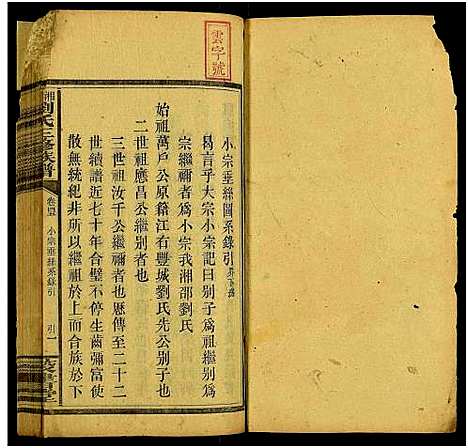 雲字號
小宗垂絲圖系錄引
曷言乎大宗小宗記曰别子為祖繼别為
宗繼禰者為小宗我湘邵劉氏
始祖萬戶公原籍江右豐城劉氏先公别子也
二世祖應昌公繼别者也
三世祖汝千公繼禰者也厯傳至二十二
世續譜近七十年合璧不停生齒彌富使
散無統紀非所以繼祖於上而合族於下
湘邵劉氏三修族譜
小宗垂絲系錄引
引一